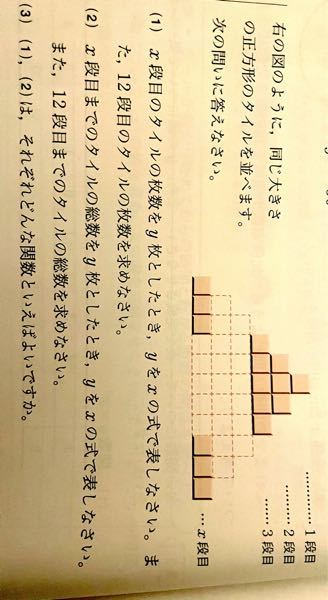 右の図のように，同じ大きさ
の正方形のタイルを並べます。
次の問いに答えなさい。
………1段目
………2段目
………3段目
…x段目
(1) x段目のタイルの枚数をy枚としたとき，yをxの式で表しなさい。ま
た，12段目のタイルの枚数を求めなさい。
(2) x段目までのタイルの総数をy枚としたとき，yをxの式で表しなさい。
また，12段目までのタイルの総数を求めなさい。
(3) (1)，(2)は，それぞれどんな関数といえばよいですか。